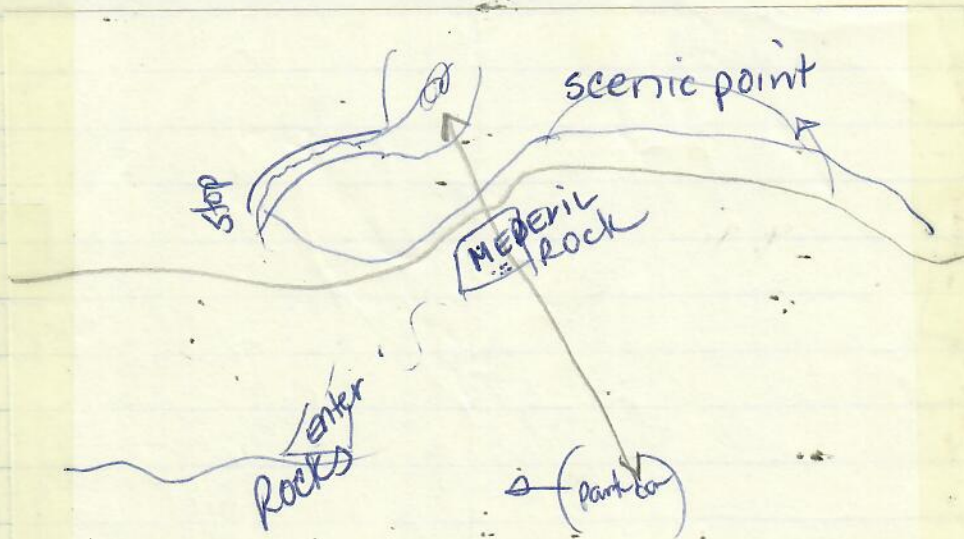 scenic point
Stop
MEDEVIL
ROCK
Enter
ROCKS
Park car